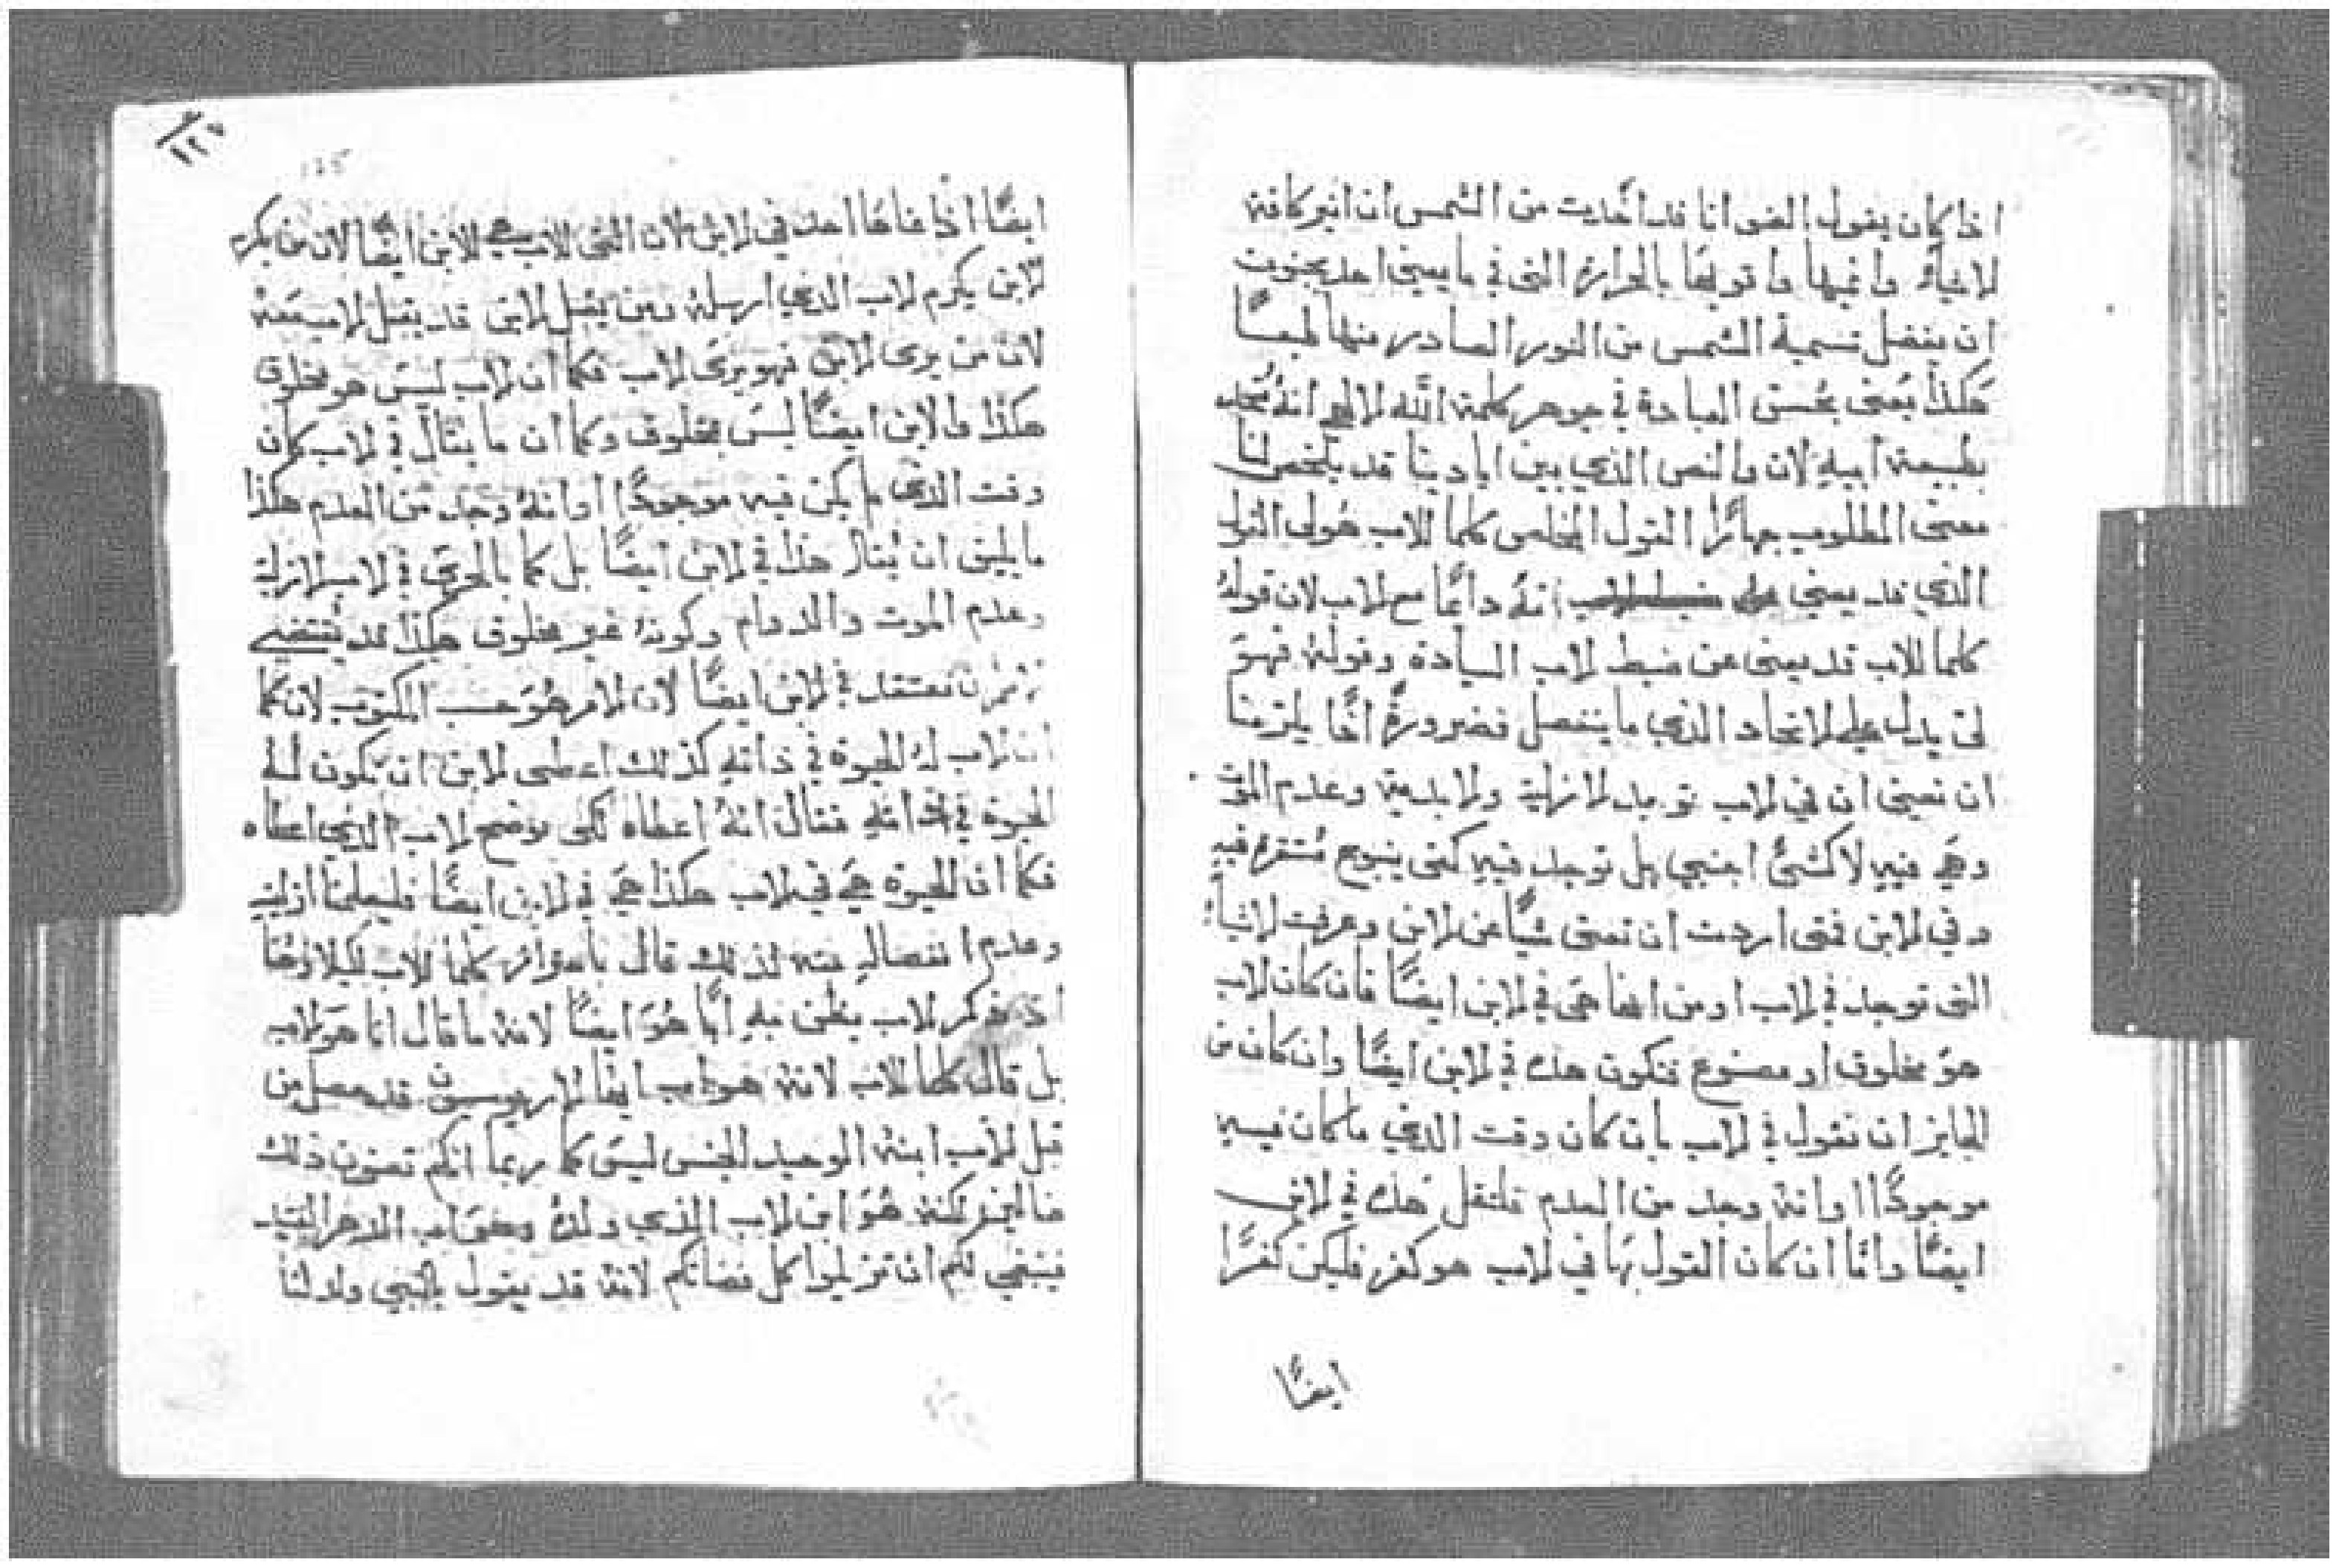 اذا كان يقول الضو انا قد اخذت من الشمس ان انير كافة
لاشياء وانميها واقويها بالحرارة التي في ما يعني احد بجنوت
ان ينفصل تسمية الشمس من النور الصادر منها طبعاً
هكذا يُعنى بحُسن العبادة في جوهر كلمة الله لالهي انهُ متحد
بطبيعة ابيهِ لان والنص الذي بين ايادينا قد يلخص لنا
معنى المطلوب جهاراً القول المخلص كلما للاب هو لي القول
الذي قد يعني انهُ دائماً مع لاب لان قولهُ
كلما للاب قد يعنى عن ضبط لاب السيادة وقولهُ فهوَ
لي يدل على لاتحاد الذي ما ينفصل فضرورةً اذًا يلزمنا
ان نعني ان في لاب توجد لازلية ولابدية وعدم الموت
وهي فيهِ لا كشئ اجنبي بل توجد فيهِ كفي ينبوع مُستقرة فيهِ
وفي لابن فمتى اردت ان تعنى شيًا عن لابن وعرفت لاشياء
التي توجد في لاب اومن انها هي في لابن ايضًا فان كان لاب
هو مخلوق او مصنوع فتكون هذه في لابن ايضًا وان كان من
الجايز ان نقول في لاب بان كان وقت الذي ما كان فيهِ
موجودًا او انهُ وجد من العدم فلتقل هذه في لابن
ايضًا واما ان كان القول بها في لاب هو كفر فليكن كفرًا
ايضًا
١٢٥
125
ايضًا اذا ما قاها احد في لابن لان التي للاب هي للابن ايضًا لان من يكرم
لابن يكرم لاب الذي ارسلهُ ومن يقبل لابن قد يقبل لاب معهُ
لان من يرى لابن فهو يرى لاب فكما ان لاب ليس هو مخلوق
هكذا ولابن ايضًا ليس بمخلوق وكما ان ما يقال في لاب كان
وقت الذي لم يكن فيه موجودًا او انهُ وجد من العدم هكذا
ما يليق ان يُقال هذا في لابن ايضًا بل كما بالحري في لاب لازلية
وعدم الموت والدوام وكونهُ غير مخلوق هكذا قد يُقتضي
ان نعتقد في لابن ايضًا لان لامر هوَ حسب المكتوب لان كما
ان لاب لهُ الحيوة في ذاتهِ كذلك اعطى لابن ان تكون لهُ
الحيوة في ذاتهِ فقال انهُ اعطاه لكي يوضح لاب الذي اعطاه
فكما ان الحيوة هي في لاب هكذا هي في لابن ايضًا فليعلمنا ازلية
وعدم انفصالهِ منه لذلك قال باحتراز كلما للاب لكيلا
اذ يذكر لاب يظن بهِ ابًا هُوَ ايضًا لانهُ ما قال انا هوَ لاب
بل قال كلما للاب لانهُ هو اب ايها لاريوسيون قد حصل من
قبل لاب ابنهُ الوحيد الجنس ليس كما ربما انكم تعنون ذلك
لكنهُ هُوَ ابن لاب الذي ولدهُ وهوَ اب الدهر العتيد
فينبغي لكم ان تزيلوا كل لانهُ قد يقول بالنبي ولد لنا